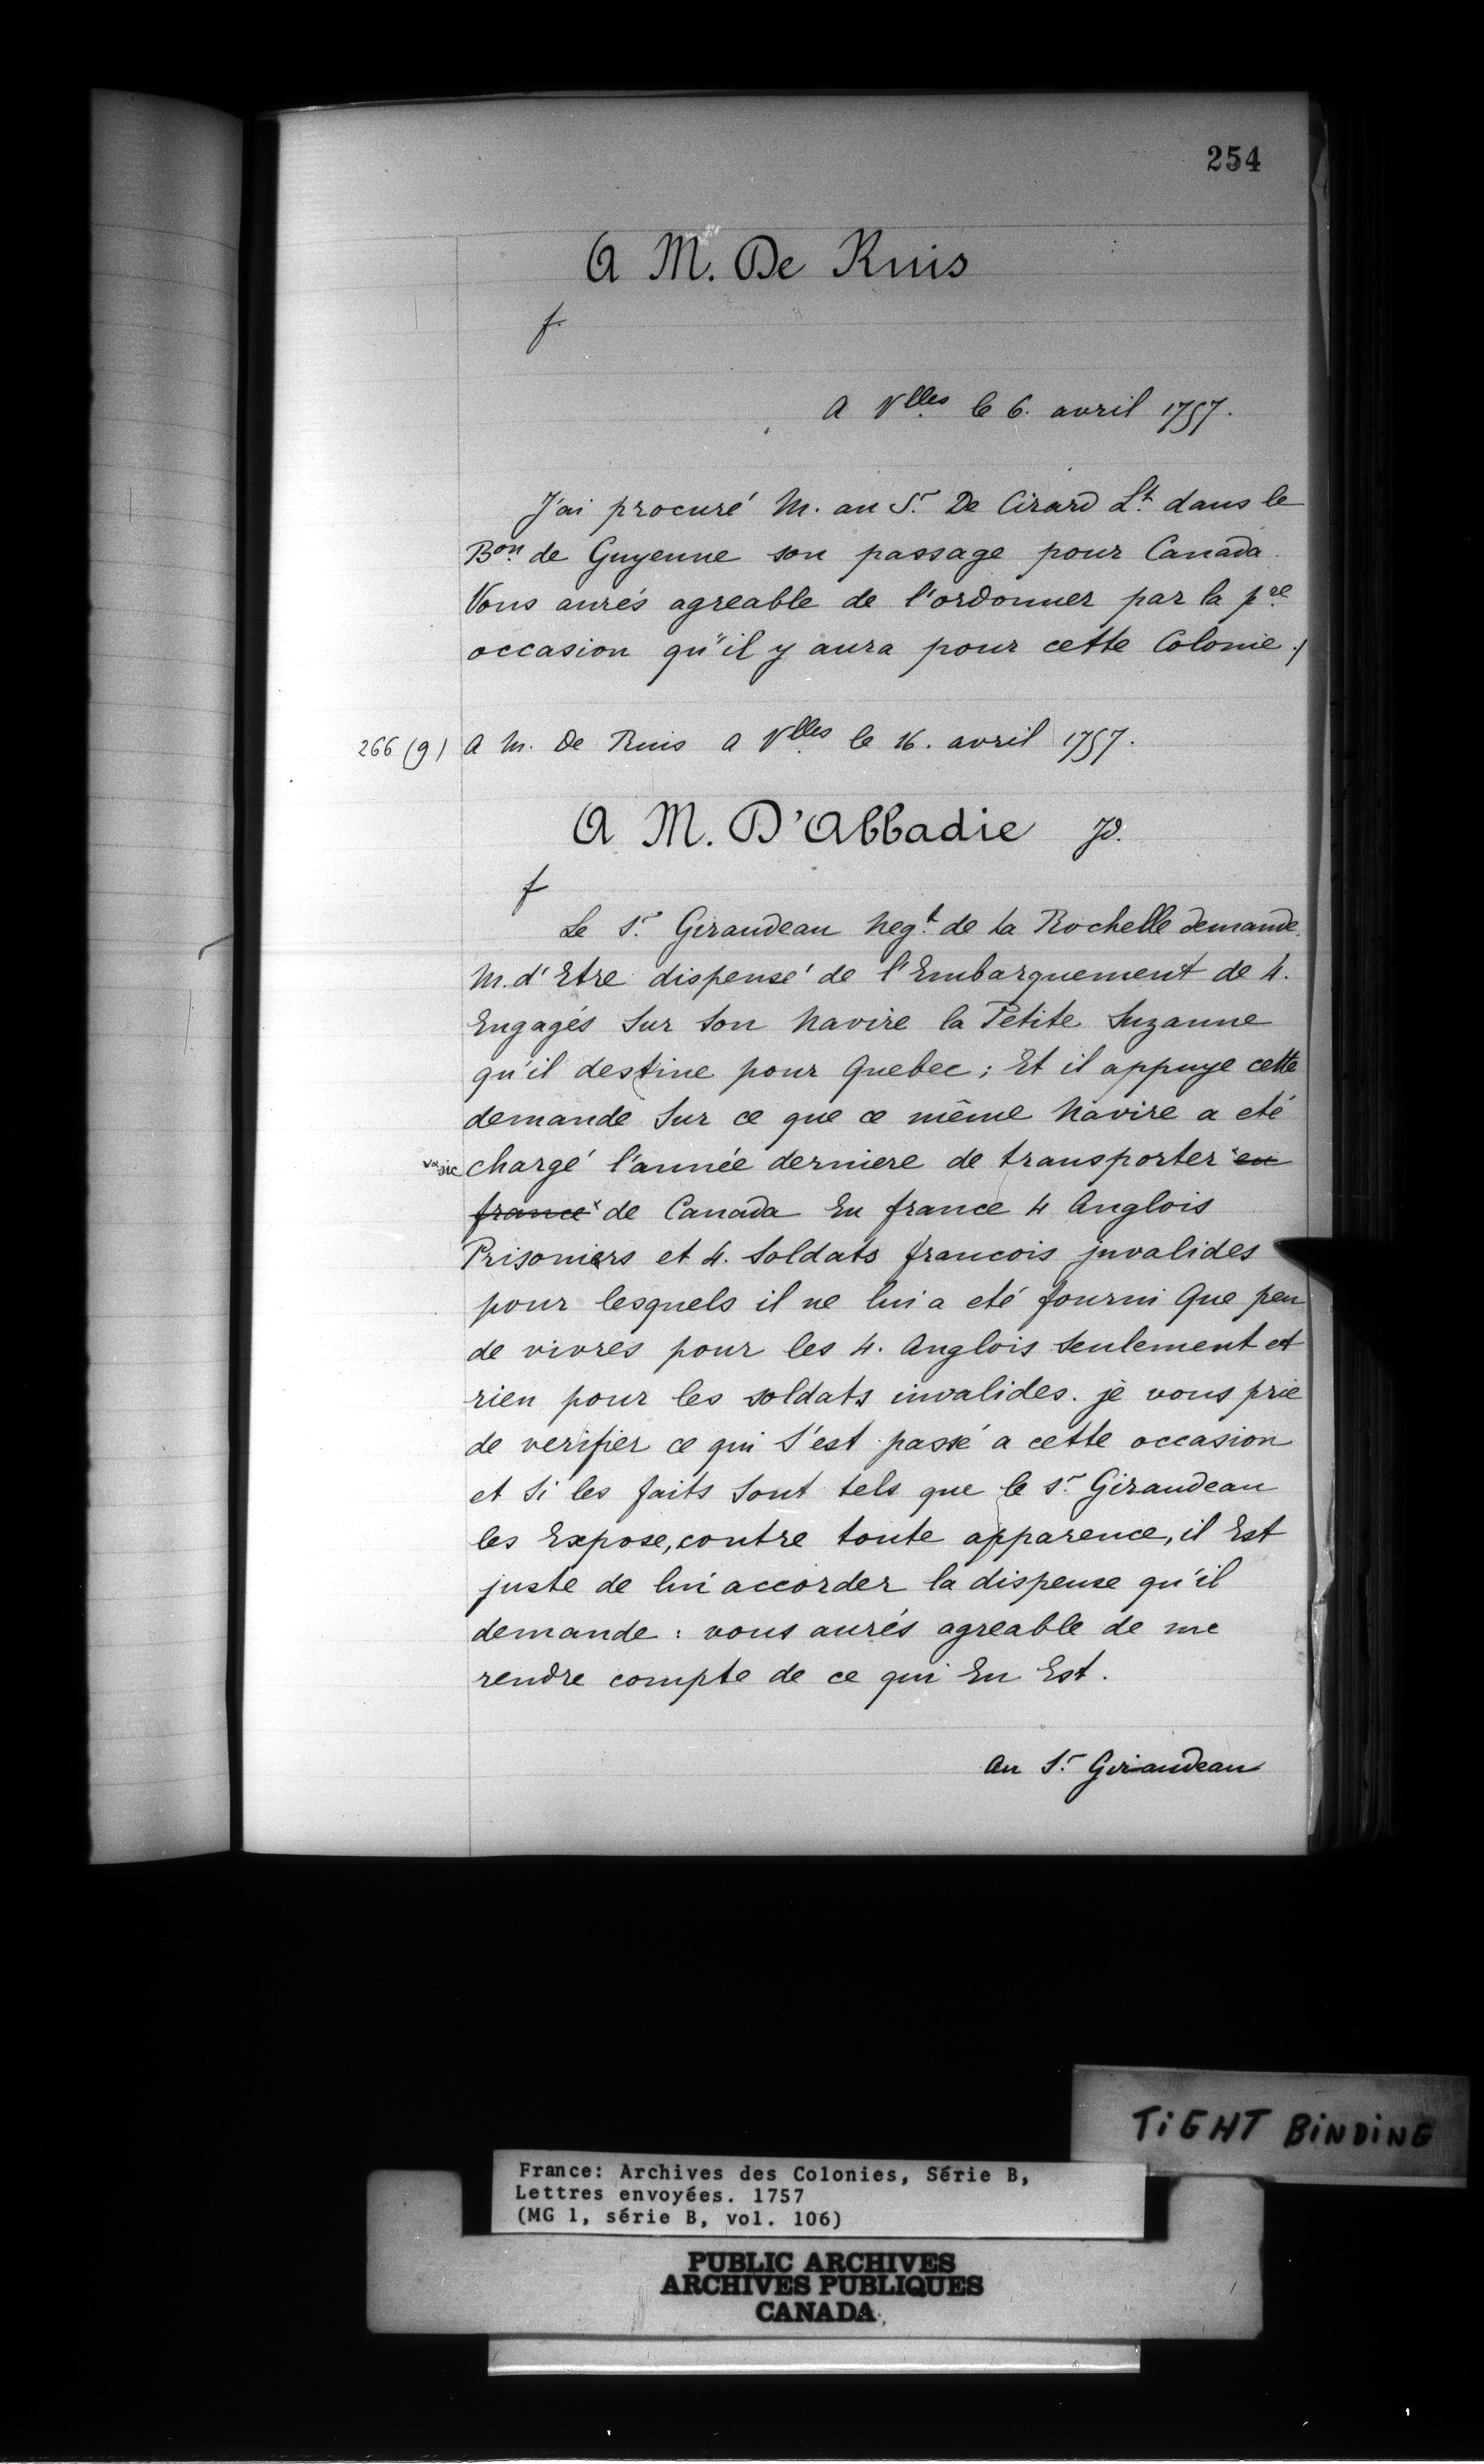 254
A M. De Ruis
f
A Vlles le 6. avril 1757.
J'ai procuré M. au Sr. De Cirard Lt. dans le
Bon. de Guyenne son passage pour Canada.
Vous aurés agreable de l'ordonner par la pre
occasion qu'il y aura pour cette Colonie./
266 (g) A M. De Ruis A Vlles le 16. avril 1757.
A M. D'Abbadie Jd.
f
Le Sr. Giraudeau Negt. de La Rochelle demande
M. d'Etre dispensé de l'Embarquement de 4.
Engagés Sur Son Navire la Petite Suzanne
qu'il destine pour Quebec; Et il appuye cette
demande Sur ce que ce même Navire a eté
sic chargé l'année derniere de transporter en
france de Canada En france 4 Anglois
Prisoniers et 4. Soldats francois jnvalides
pour lesquels il ne lui a eté fourni Que peu
de vivres pour les 4. Anglois Seulement et
rien pour les soldats invalides. je vous prie
de verifier ce qui S'est passé a cette occasion
et Si les faits Sont tels que le Sr. Giraudeau
les Expose, contre toute apparence, il Est
juste de lui accorder la dispense qu'il
demande : vous aurés agreable de me
rendre compte de ce qui En Est.
Au Sr. Giraudeau
TiGHT BiNDiNG
France: Archives des Colonies, Série B,
Lettres envoyées. 1757
(MG 1, série B, vol. 106)
PUBLIC ARCHIVES
ARCHIVES PUBLIQUES
CANADA